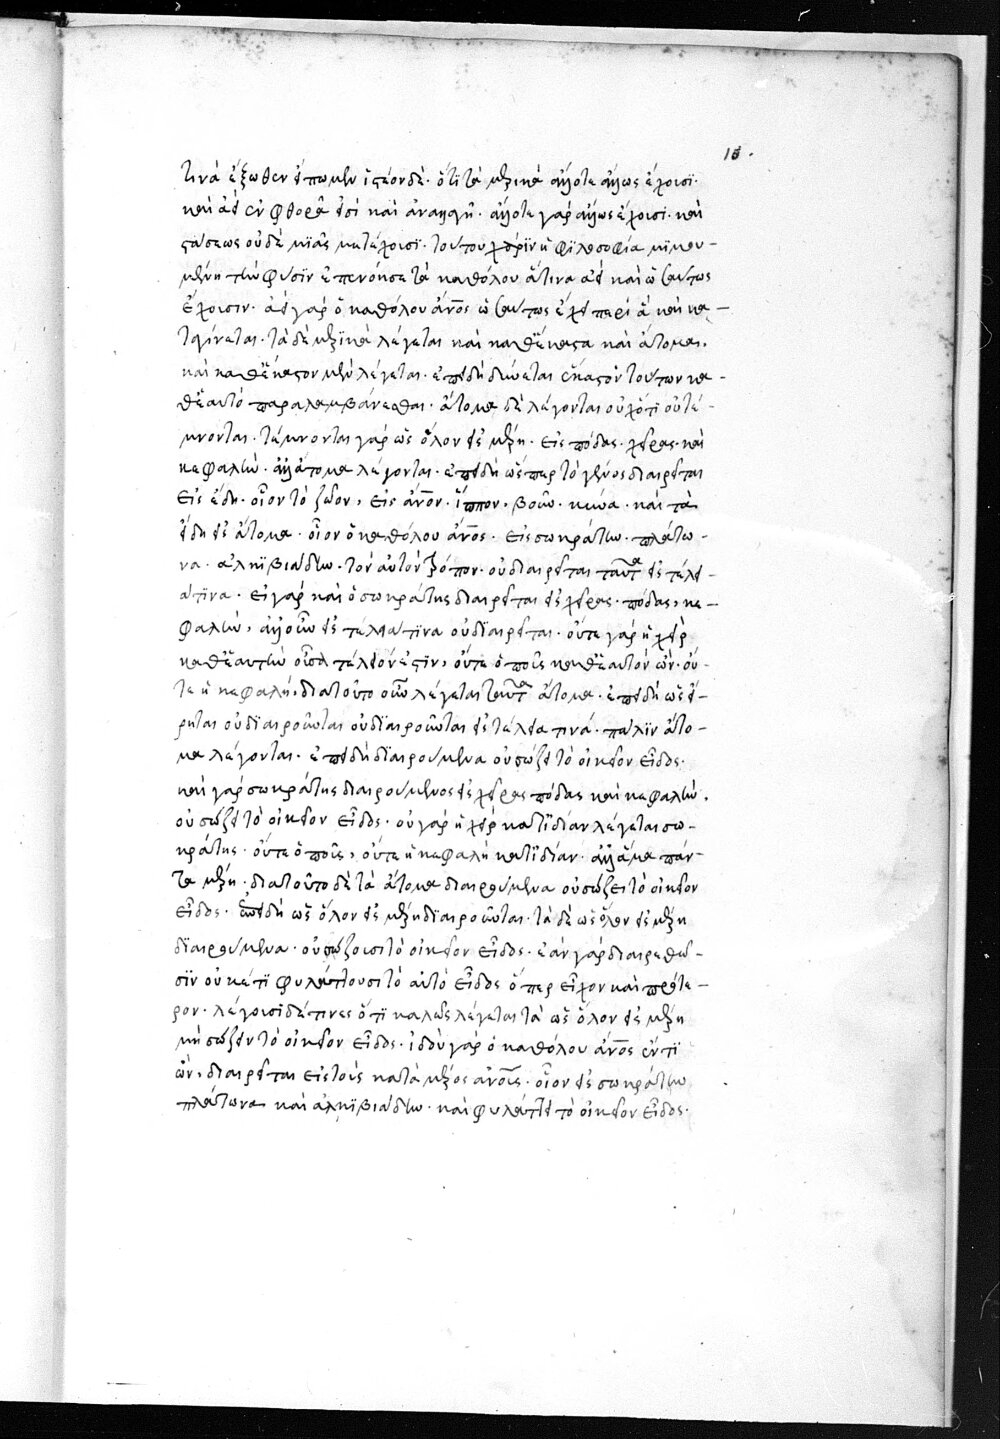 15.
τινὰ ἔξωθεν εἴπωμεν ἰστέον δὲ· ὅτι τὰ μερικὰ ἄλλοτε ἄλλως ἔχουσϊ·
καὶ ἀεὶ ἐν φθορᾷ εἰσὶ καὶ ἀναλλαγῇ· ἄλλοτε γὰρ ἄλλως ἔχουσι· καὶ
στάσεως οὐδὲ μϊᾶς μετέχουσϊ· τούτου χάρϊν ἡ φϊλοσοφία μϊμου-
μένη τὴν φύσϊν ἐπενόησε τὰ καθόλου ἅτινα ἀεὶ καὶ ὡσαύτως
ἔχουσιν· ἀεὶ γὰρ ὁ καθόλου ἄνος ὡσαύτως ἔχει περὶ ἃ καὶ κα-
ταγίνεται· τὰ δὲ μερϊκὰ λέγεται καὶ καθέκαστα καὶ ἄτομα.
καὶ καθέκαστον μὲν λέγεται· ἐπειδὴ δύνεται ἕκαστον τούτων κα-
θἑαυτὸ παραλαμβάνεσθαι· ἄτομα δὲ λέγονται οὐχ ὅτϊ οὐ τέ-
μνονται· τέμνονται γὰρ ὡς ὅλον εἰς μέρη· εἰς πόδας· χεῖρας· καὶ
κεφαλὴν· ἀλλ' ἄτομα λέγονται· ἐπειδὴ ὥσπερ τὸ γένος διαιρεῖται
εἰς εἴδη· οἷον τὸ ζῶον, εἰς ἄνον· ἵππον, βοῦν· κύνα· καὶ τὰ
εἴδη εἰς ἄτομα· οἷον ὁ καθόλου ἄνος· εἰς σωκράτην· πλάτω-
να· ἀλκϊβιάδην· τὸν αὐτὸν τρόπον· οὐ διαιρεῖται ταῦτα εἰς τέλει-
ά τϊνα· εἰ γὰρ καὶ ὁ σωκράτης διαιρεῖται εἰς χεῖρας· πόδας, κε-
φαλὴν, ἀλλ' οὖν εἰς τέλεια τϊνα οὐ δϊαιρεῖται· οὔτε γὰρ ἡ χεὶρ
καθἑαυτὴν οὖσα τέλειόν ἐστϊν, οὔτε ὁ ποῦς καθἑαυτὸν ὤν· οὔ-
τε ἡ κεφαλή, διὰ τοῦτο οὖν λέγεται ταῦτα ἄτομα· ἐπειδὴ ὡς εἴ-
ρηται οὐ δϊαιροῦνται οὐ δϊαιροῦνται εἰς τέλεια τινά· πάλϊν ἄτο-
μα λέγονται· ἐπειδὴ δϊαιρούμενα οὐ σώζει τὸ οἰκεῖον εἶδος·
καὶ γὰρ σωκράτης διαιρούμενος εἰς χεῖρας πόδας καὶ κεφαλὴν,
οὐ σώζει τὸ οἰκεῖον εἶδος· οὐ γὰρ ἡ χεὶρ κατϊδίαν λέγεται σω-
κράτης· οὔτε ὁ ποῦς, οὔτε ἡ κεφαλὴ κατϊδίαν· ἀλλ' ἅμα πάν-
τα μέρη· διὰ τοῦτο δὲ τὰ ἄτομα διαιρούμενα οὐ σώζει τὸ οἰκεῖον
εἶδος· ἐπειδὴ ὡς ὅλον εἰς μέρη δϊαιροῦνται· τὰ δὲ ὡς ὅλον εἰς μέρη
δϊαιρούμενα· οὐ σώζουσι τὸ οἰκεῖον εἶδος· ἐὰν γὰρ διαιρεθῶ-
σϊν οὐκέτϊ φυλάττουσι τὸ αὐτὸ εἶδος ὅπερ εἶχον καὶ πρότε-
ρον· λέγουσϊ δέ τινες ὅτϊ καλῶς λέγεται τὰ ὡς ὅλον εἰς μέρη
μὴ σώζειν τὸ οἰκεῖον εἶδος· ἰδοὺ γὰρ ὁ καθόλου ἄνος ἕν τϊ
ὤν, διαιρεῖται εἰς τοὺς κατὰ μέρος ἄνους· οἷον εἰς σωκράτην
πλάτωνα καὶ ἀλκϊβιάδην· καὶ φυλάττει τὸ οἰκεῖον εἶδος·